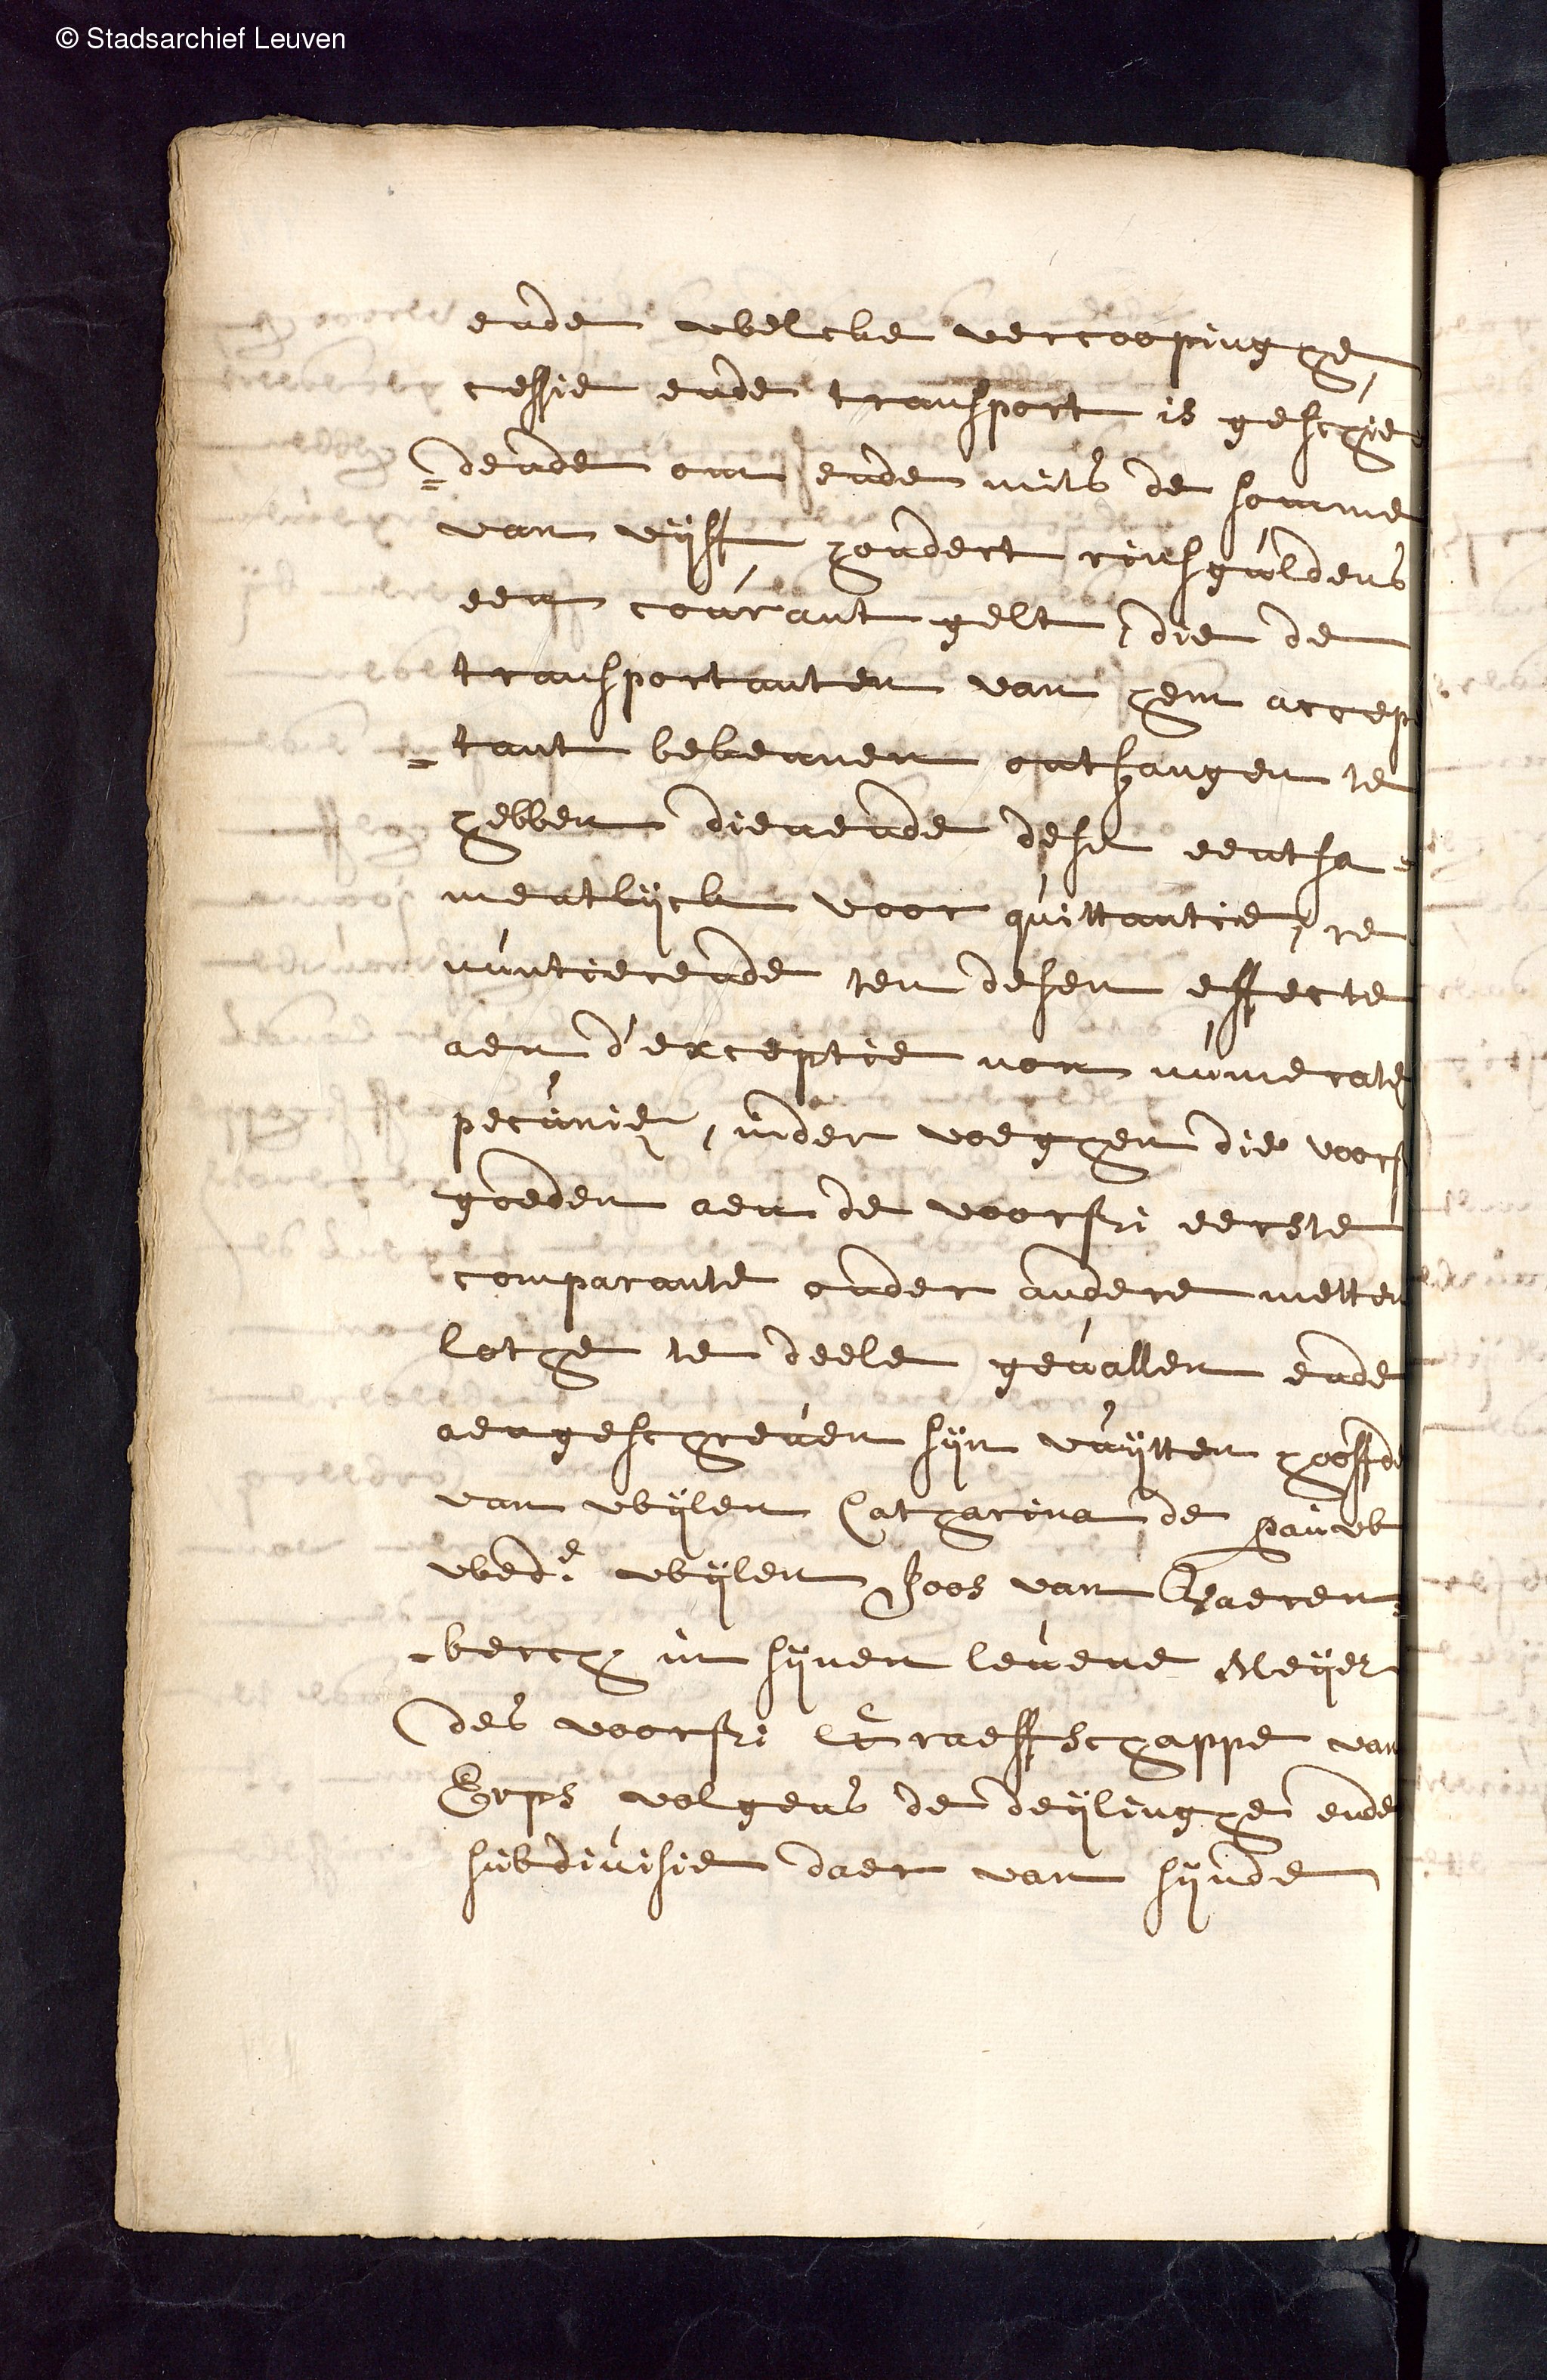 © Stadsarchief Leuven
ende welcke vercoopinghe,
cessie ende transport is geschie
=dende om ende mits de somme
van vijff hondert rinsguldens
een courant gelt, die de
transportanten van hem accep
=tant bekennen ontfangen te
hebben dienende dese eentsa=
mentlijck voor quittantie, re
nuntierende ten desen effecte
aen d'exceptie non numerate
pecunie, inder voeghen die voors
goeden aen de voors: eerste
comparante onder andere metten
lothe te deele gevallen ende
aengeschreven sijn vuijtten hooffde
van wijlen Catharina de
wede: wijlen Joos van Haeren=
-berch in sijnen levene Meijer
des voors: Graeffschappe van
Erps volgens de deijlinghe ende
subdivisie daer van sijnde